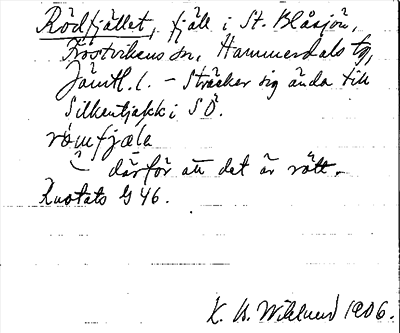 Rödfjället, fjäll i St. Blåsjön,
Frostvikens sn, Hammerdals tg,
Jämtl. l. – Sträcker sig ända till
Silkentjakk i SÖ.
römfjæla
– därför att det är rött.
Rustats G 46.
K. B. Wiklund 1906.